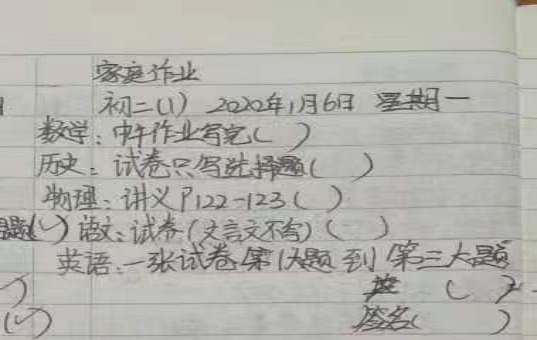 家庭作业
初二(1) 2020年1月6日 星期一
数学:中午作业写完( )
历史:试卷只写选择题( )
物理:讲义P122-123( )
题(✓) 语文:试卷(文言文不写)( )
英语:一张试卷第1大题到第三大题
( )
(✓) 签名( )